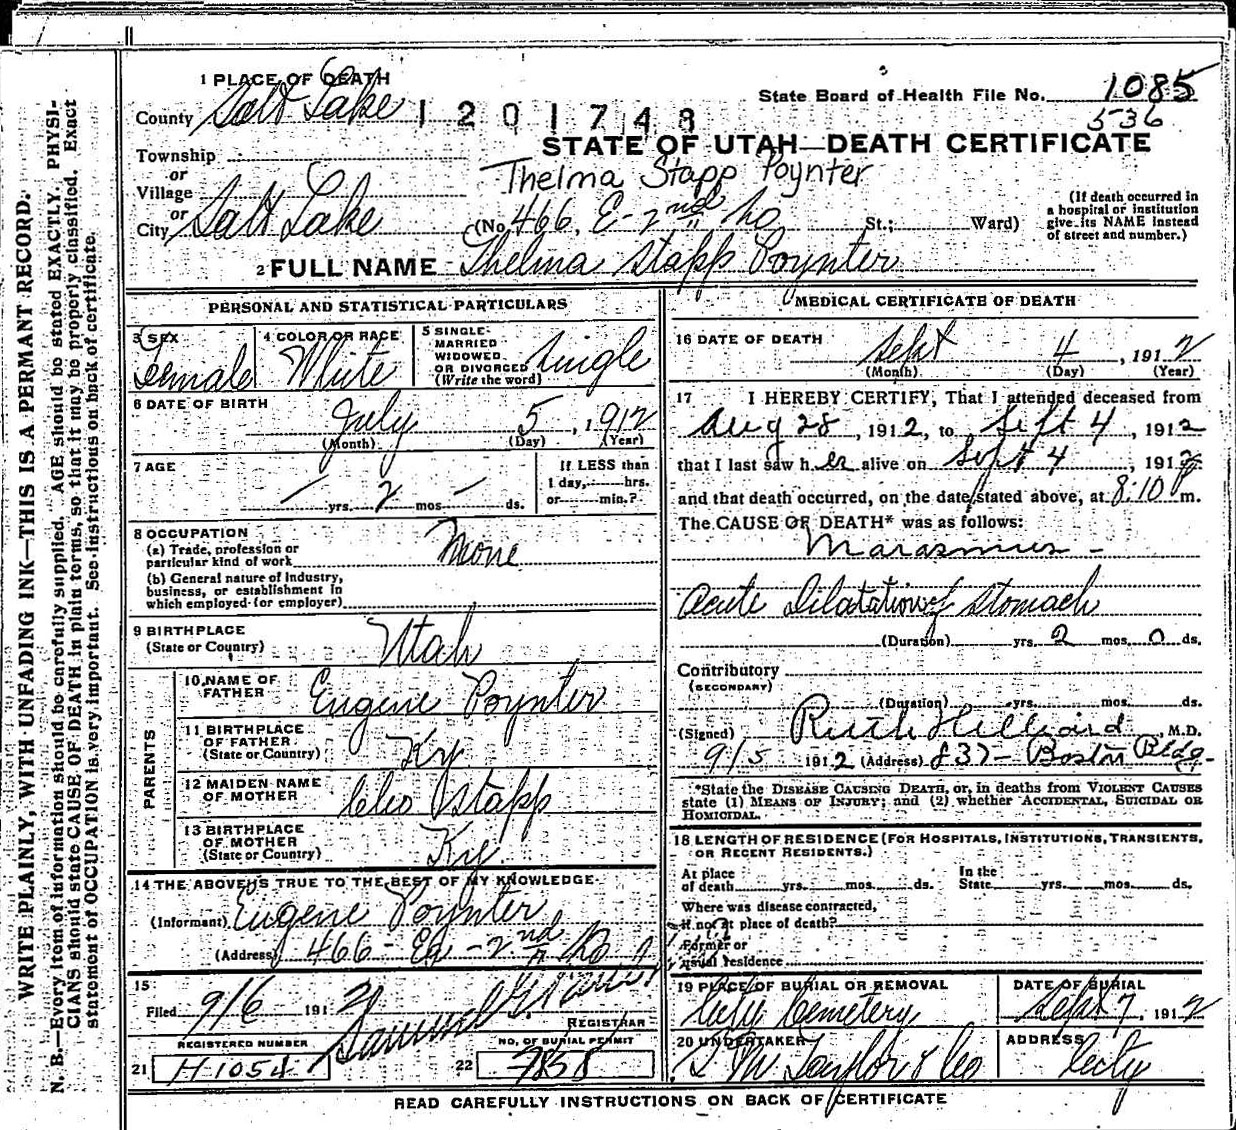 1 PLACE OF DEATH
County Salt Lake
1201748
State Board of Health File No. 1085
536
STATE OF UTAH—DEATH CERTIFICATE
Township
or
Village
or
City Salt Lake
Thelma Stapp Poynter
(No. 466. E - 2nd No St.; Ward)
(If death occurred in
a hospital or institution
give its NAME instead
of street and number.)
2 FULL NAME Thelma Stapp Poynter
PERSONAL AND STATISTICAL PARTICULARS
3 SEX
Female
4 COLOR OR RACE
White
5 SINGLE
MARRIED
WIDOWED
OR DIVORCED
(Write the word)
Single
6 DATE OF BIRTH
July 5, 1912
(Month) (Day) (Year)
7 AGE
— yrs. 2 mos — ds.
If LESS than
1 day, hrs.
or min.?
8 OCCUPATION
(a) Trade, profession or
particular kind of work None
(b) General nature of Industry,
business, or establishment in
which employed (or employer)
9 BIRTHPLACE
(State or Country) Utah
PARENTS
10 NAME OF
FATHER Eugene Poynter
11 BIRTHPLACE
OF FATHER
(State or Country) Ky
12 MAIDEN NAME
OF MOTHER Cleo Stapp
13 BIRTHPLACE
OF MOTHER
(State or Country) Ky
14 THE ABOVE IS TRUE TO THE BEST OF MY KNOWLEDGE
(Informant) Eugene Poynter
(Address) 466 - Ea - 2nd No
15
Filed 9/6 1912 Samuel G.
REGISTRAR
REGISTERED NUMBER
21 H1054
NO. OF BURIAL PERMIT
22 7858
MEDICAL CERTIFICATE OF DEATH
16 DATE OF DEATH
Sept 4, 1912
(Month) (Day) (Year)
17 I HEREBY CERTIFY, That I attended deceased from
Aug 28, 1912, to Sept 4, 1912
that I last saw her alive on Sept 4, 1912
and that death occurred, on the date stated above, at 8:10 P m.
The CAUSE OF DEATH* was as follows:
Marasmus -
Acute Dilatation of Stomach
(Duration) yrs. 2 mos. 0 ds.
Contributory
(SECONDARY)
(Duration) yrs. mos. ds.
(Signed) Ruth Hilliard, M.D.
9/5 1912 (Address) 837 - Boston Bldg -
*State the DISEASE CAUSING DEATH, or, in deaths from VIOLENT CAUSES
state (1) MEANS OF INJURY; and (2) whether ACCIDENTAL, SUICIDAL OR
HOMICIDAL.
18 LENGTH OF RESIDENCE (FOR HOSPITALS, INSTITUTIONS, TRANSIENTS,
OR RECENT RESIDENTS.)
At place
of death yrs. mos. ds.
In the
State yrs. mos. ds.
Where was disease contracted,
if not at place of death?
Former or
usual residence
19 PLACE OF BURIAL OR REMOVAL
City Cemetery
DATE OF BURIAL
Sept 7, 1912
20 UNDERTAKER
S M Taylor & Co
ADDRESS
City
READ CAREFULLY INSTRUCTIONS ON BACK OF CERTIFICATE
WRITE PLAINLY, WITH UNFADING INK—THIS IS A PERMANT RECORD.
N. B.—Every item of information should be carefully supplied. AGE should be stated EXACTLY. PHYSI-
CIANS should state CAUSE OF DEATH in plain terms, so that it may be properly classified. Exact
statement of OCCUPATION is very important. See instructions on back of certificate.